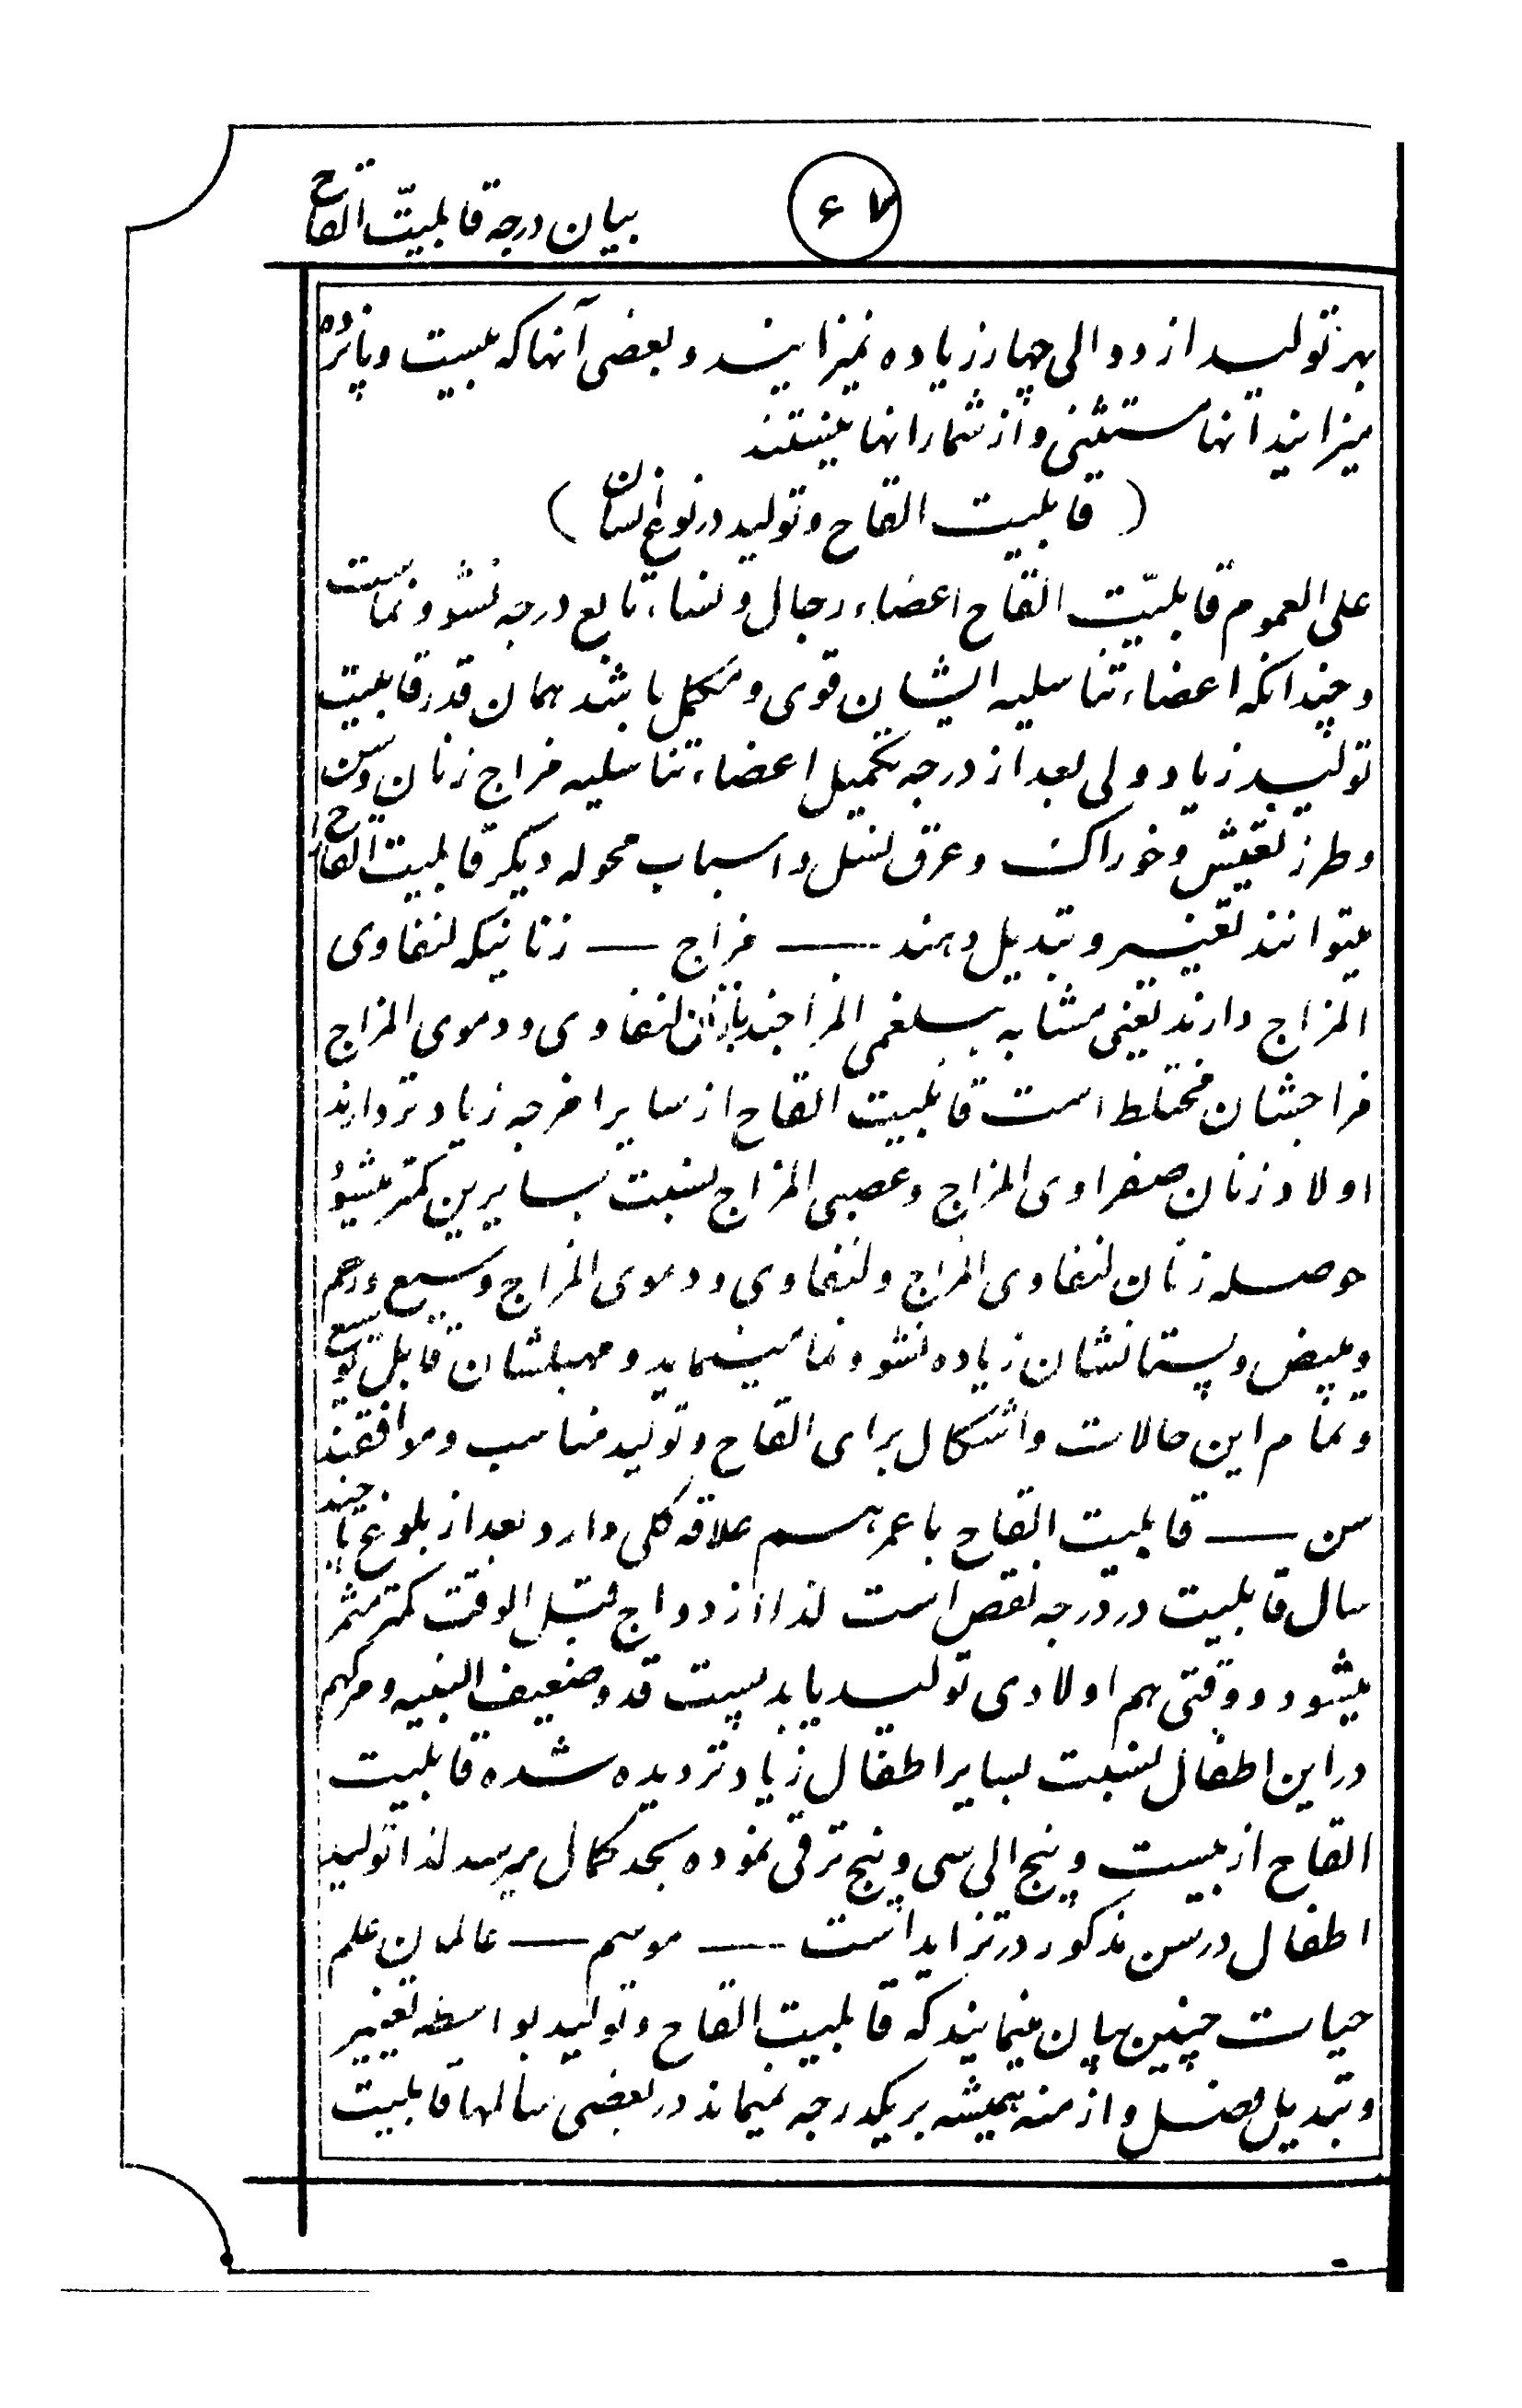 بیان درجه قابلیّت القاح
۶۷
بهر تولید از دو الی چهار زیاده نمیزایند و بعضی آنها که بیست و پانزده
میزایند آنها مستثنی و از شمار انها نیستند
( قابلیت القاح و تولید در نوع انسان )
علی العموم قابلیّت القاح اعضاء رجال و نساء تابع درجه نشو و نماست
و چندانکه اعضاء تناسلیه ایشان قوی و مکمل باشد همان قدر قابلیت
تولید زیاد ولی بعد از درجه تکمیل اعضاء تناسلیه مزاج زنان و سن
و طرز تعیش و خوراک و عرق نسل و اسباب محوله دیکر قابلیت القاح را
میتوانند تغییر و تبدیل دهند — مزاج — زنانیکه لنفاوی
المزاج دارند یعنی مشابه ببلغمی المزاجند یا زنان لنفاوی و دموی المزاج
مزاجشان مختلط است قابلیت القاح از سایر امزجه زیادتر دارند
اولاد زنان صفراوی المزاج و عصبی المزاج نسبت بسایرین کمتر میشود
حوصله زنان لنفاوی المزاج و لنفاوی و دموی المزاج وسیع و رحم
و مبیض و پستانشان زیاده نشو و نما مینماید و مهبلشان قابل توسیع
و تمام این حالات و اشکال برای القاح و تولید مناسب و موافقند
سن — قابلیت القاح با عمر هم علاقه کلی دارد بعد از بلوغ تا چند
سال قابلیت در درجه نقص است لذا ازدواج قبل الوقت کمتر مثمر
میشود و وقتی هم اولادی تولید یابد پست قد و ضعیف البنیه و مرک هم
در این اطفال نسبت بسایر اطفال زیادتر دیده شده قابلیت
القاح از بیست و پنج الی سی و پنج ترقی نموده بحد کمال میرسد لذا تولید
اطفال در سن مذکور در تزاید است — موسم — عالمان علم
حیات چنین بیان مینمایند که قابلیت القاح و تولید بواسطه تغییر
و تبدیل فصل و ازمنه همیشه بریکدرجه نمیماند در بعضی سالها قابلیت